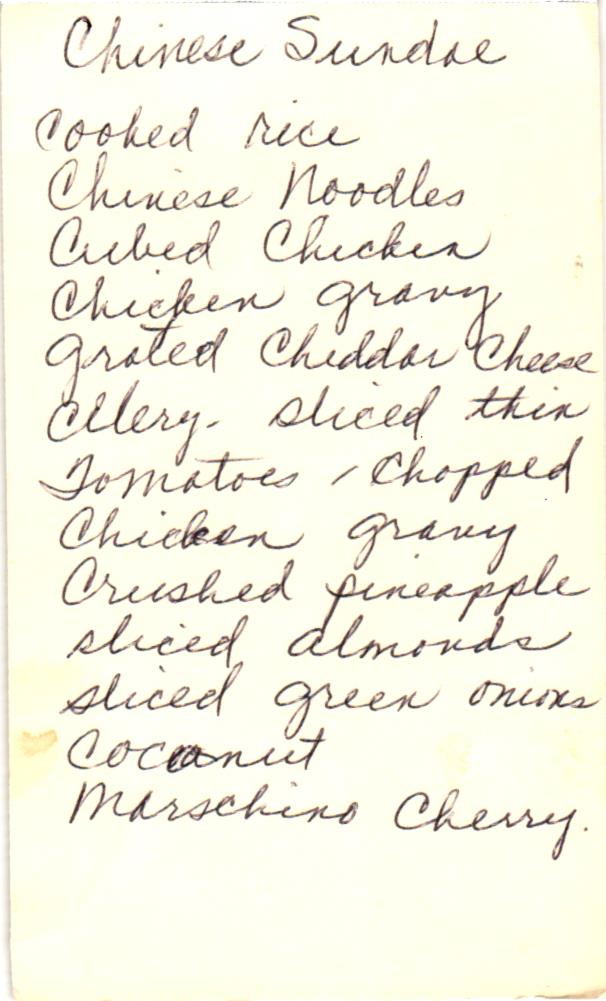 Chinese Sundae
Cooked rice
Chinese Noodles
Cubed Chicken
Chicken gravy
grated Cheddar Cheese
Celery - sliced thin
Tomatoes - chopped
Chicken gravy
Crushed pineapple
sliced almonds
sliced green onions
Coconut
Marschino Cherry.